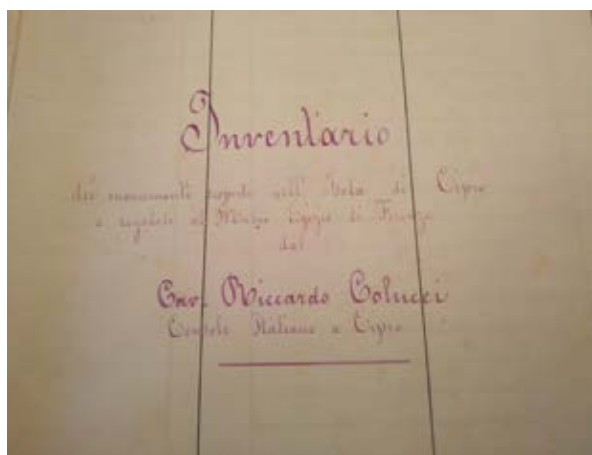 Inventario
dei monumenti scoperti nell'Isola di Cipro
e regalati al Museo Egizio di Firenze
dal
Cav. Riccardo Colucci
Console Italiano a Cipro